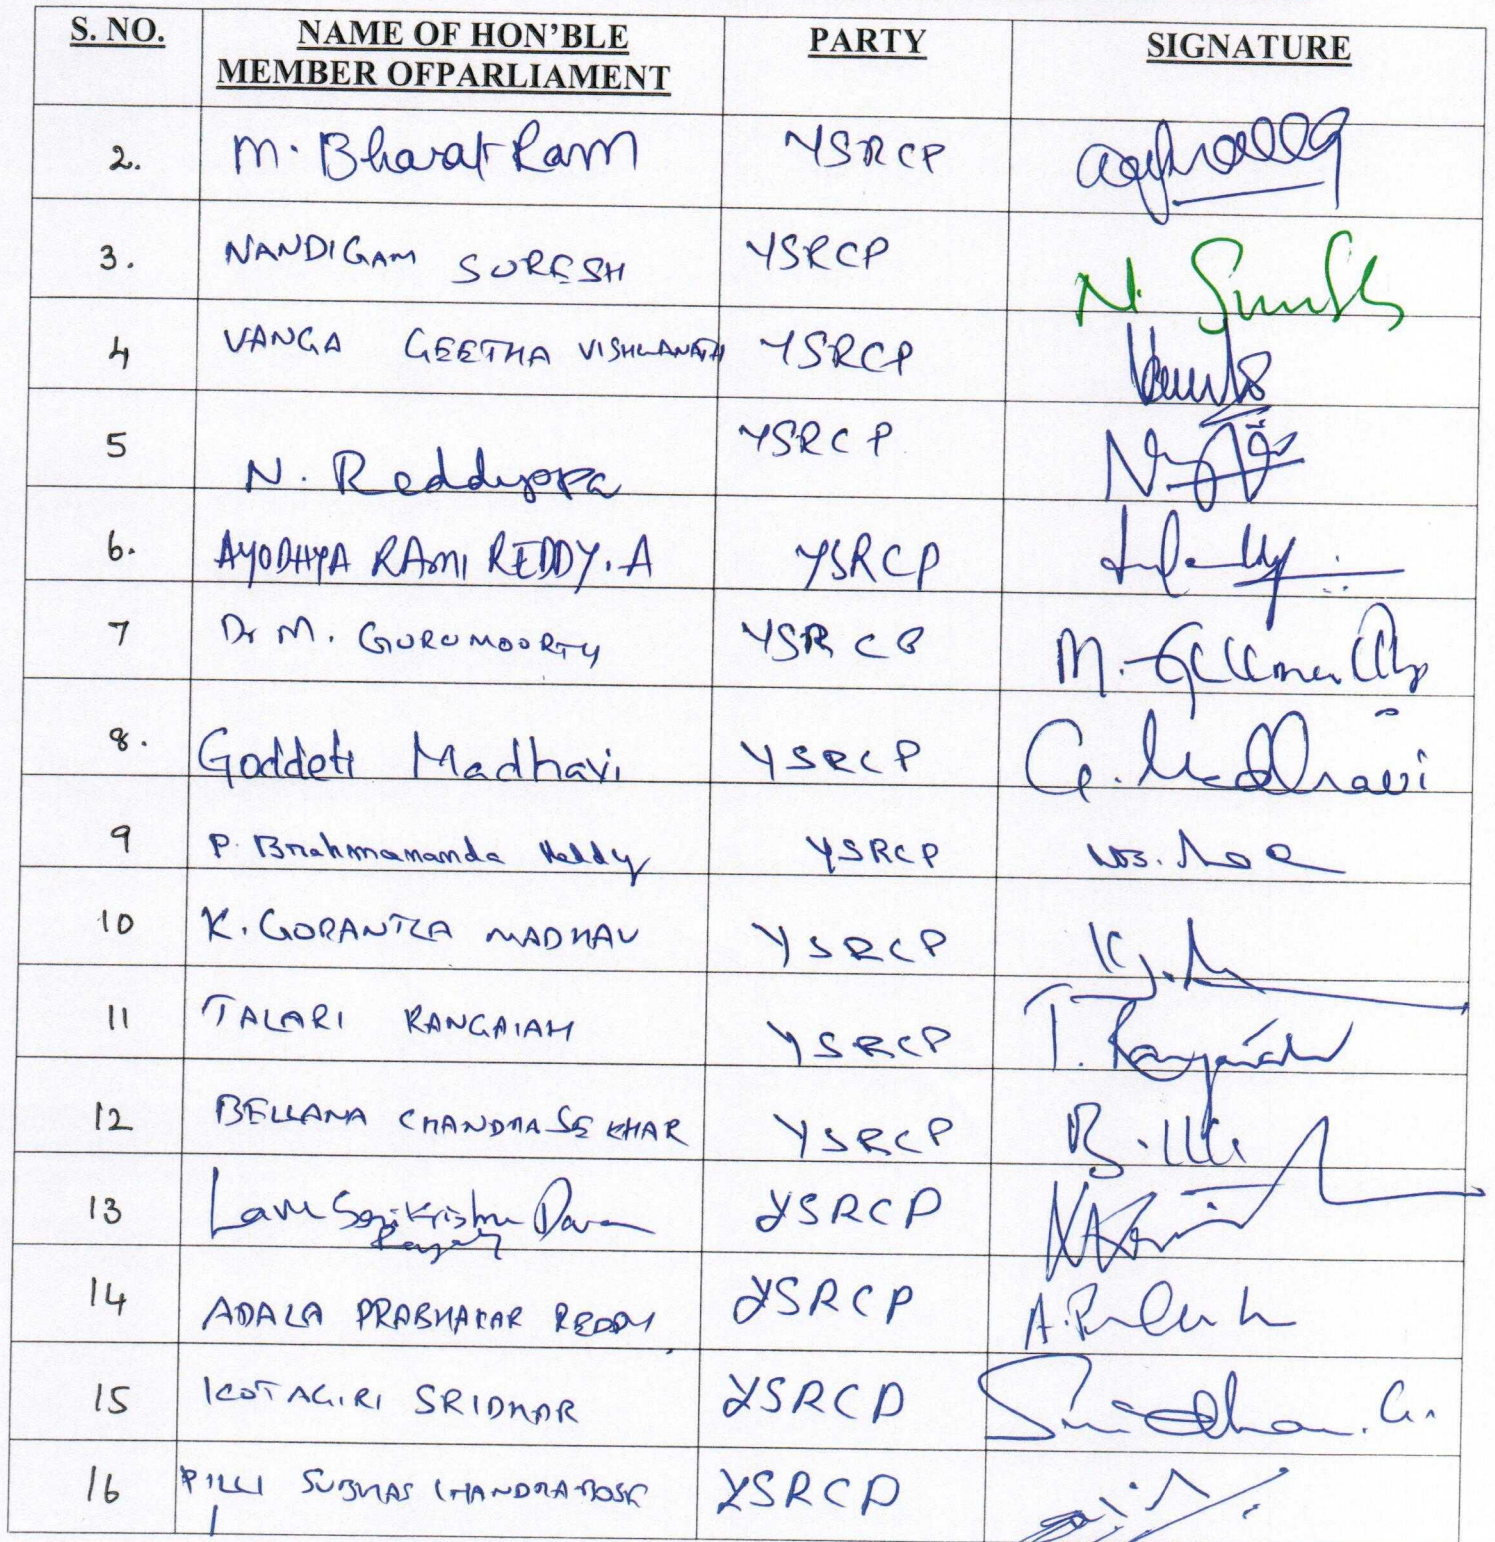 S. NO. NAME OF HON'BLE PARTY SIGNATURE
MEMBER OFPARLIAMENT
2. M. Bharat Ram YSRCP
3. NANDIGAM SURESH YSRCP N. Suresh
4 VANGA GEETHA VISHWANATH YSRCP
5 N. Reddyppa YSRCP
6. AYODHYA RAMI REDDY. A YSRCP
7 Dr M. GURUMOORTY YSRCP M.
8. Goddeti Madhavi YSRCP G. Madhavi
9 P. Brahmananda Reddy YSRCP
10 K. GORANTLA MADHAV YSRCP
11 TALARI RANGAIAH YSRCP T. Rangaiah
12 BELLANA CHANDRA SEKHAR YSRCP
13 Lavu Sri Krishna Deva YSRCP
14 ADALA PRABHAKAR REDDY YSRCP
15 KOTAGIRI SRIDHAR YSRCP
16 PILLI SUBHAS CHANDRA BOSE YSRCP